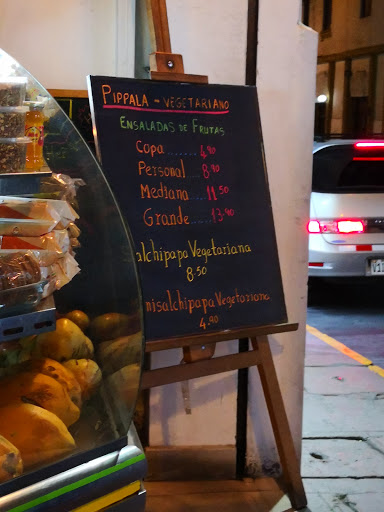 PIPPALA - VEGETARIANO
ENSALADAS DE FRUTAS
Copa.......4.90
Personal....8.90
Mediana....11.50
Grande.....13.90
alchipapa Vegetariana
8.50
nisalchipapa Vegetariana
4.90